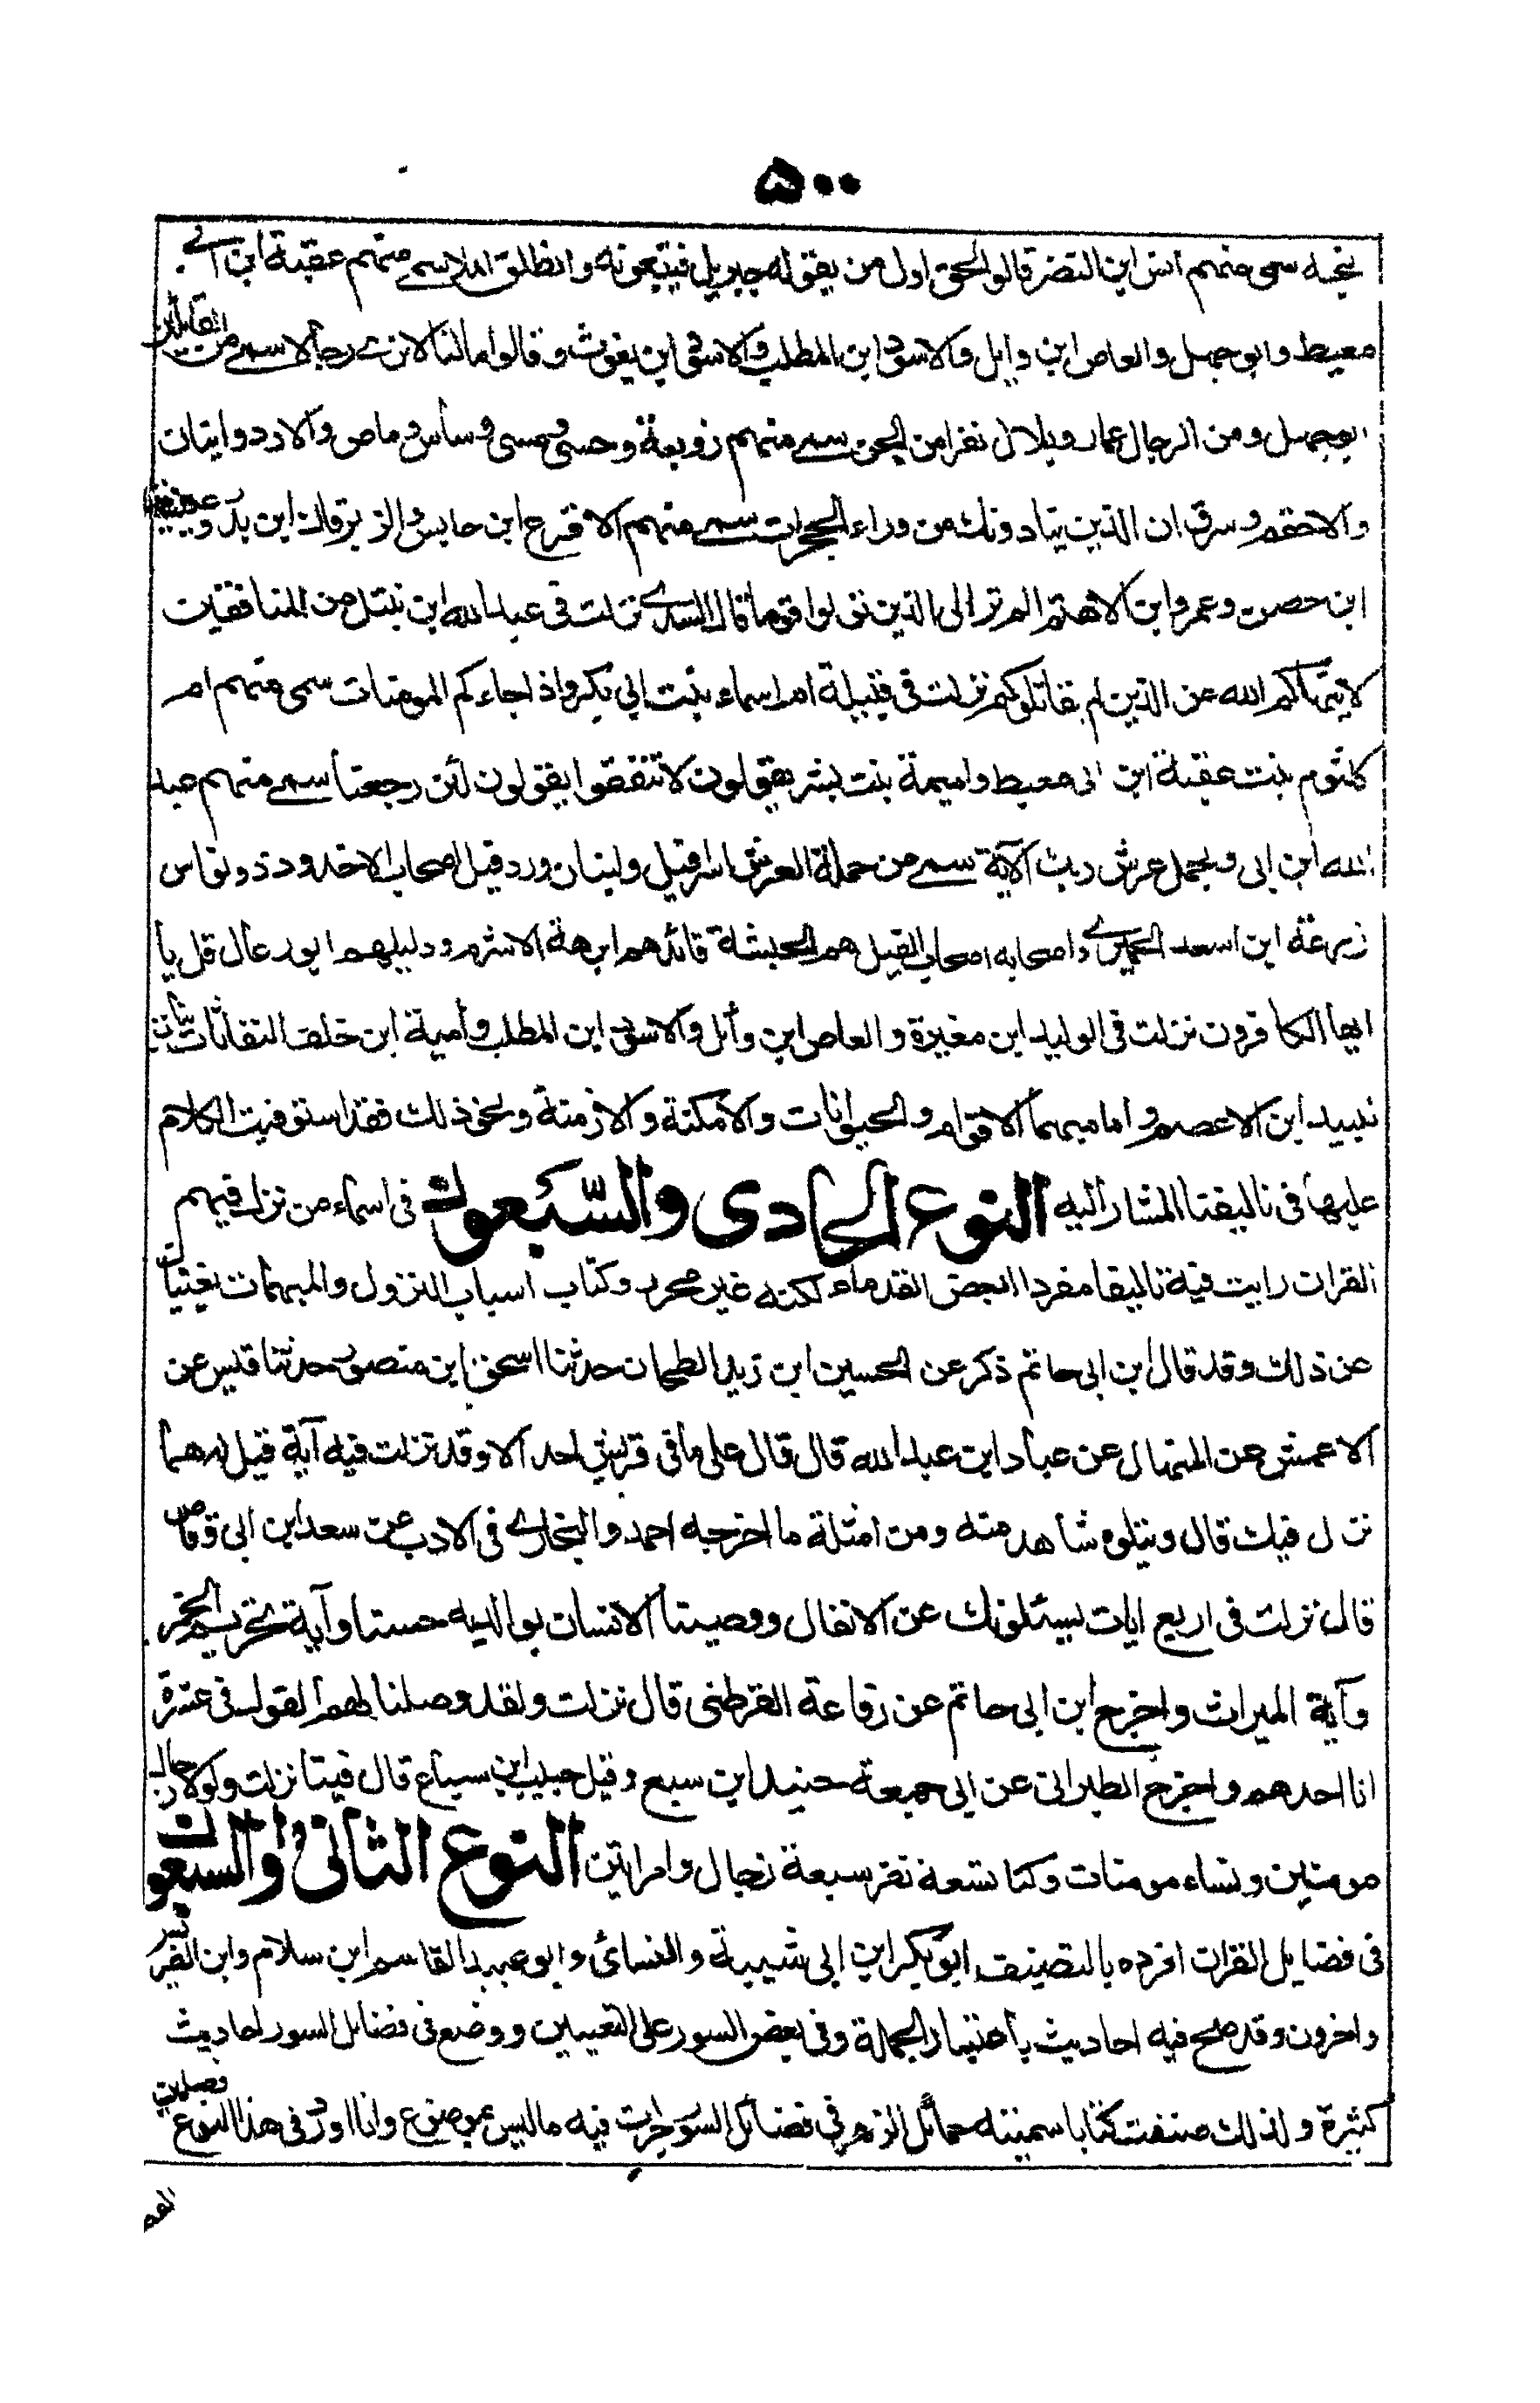 ۵۰۰
نحبه سمى منهم انس ابن النضر قالوا الحق اول من يقوله جبريل فيتبعونه وانطلق الملا سمى منهم عقبة ابن ابى
معيط وابو جهل والعاص ابن وايل والاسود ابن المطلب والاسود ابن يغوث وقالوا مالنا لا نرى رجالا سمى من القايلين
ابو جهل ومن الرجال عمار وبلال نفرا من الجن سمى منهم زوبعة وحسى ومسى وساس وماص والارد وانيان
والاحقم وسرق ان الذين ينادونك من وراء الحجرات سمى منهم الاقرع ابن حابس والزبرقان ابن بدر وعيينة
ابن حصن وعمرو ابن الاهتم الم تر الى الذين تولوا قوما قال السدى نزلت فى عبد الله ابن نبتل من المنافقين
لا ينهاكم الله عن الذين لم يقاتلوكم نزلت فى قتيلة ام اسماء بنت ابى بكر واذا جاءكم المومنات سمى منهم ام
كلثوم بنت عقبة ابن ابى معيط واميمة بنت بشر يقولون لا تنفقوا يقولون لئن رجعنا سمى منهم عبد
الله ابن ابى ويحمل عرش ربك الآية سمى من حملة العرش اسرافيل ولبنان وردفيل اصحاب الاخدود ذو نواس
زرعة ابن اسعد الحميرى واصحابه اصحاب الفيل هم الحبشة قائدهم ابرهة الاشرم ودليلهم ابو رغال قل يا
ايها الكافرون نزلت فى الوليد ابن مغيرة والعاص ابن وائل والاسود ابن المطلب وامية ابن خلف النفاثات بنات
لبيد ابن الاعصم واما مبهما الاقوام والحيوانات والامكنة والازمنة ونحو ذلك فقد استوفيت الكلام
عليها فى تاليفنا المشار اليه النوع الحادى والسبعون فى اسماء من نزل فيهم
القران رايت فيه تاليفا مفردا لبعض القدماء لكنه غير محرر وكتاب اسباب النزول والمبهمات يغنيان
عن ذلك وقد قال ابن ابى حاتم ذكر عن الحسين ابن زيد الطحان حدثنا اسحق ابن منصور حدثنا قيس عن
الاعمش عن المنهال عن عباد ابن عبد الله قال قال على ما فى قريش احد الا وقد نزلت فيه آية قيل له فما
نزل فيك قال ويتلوه شاهد منه ومن امثلة ما اخرجه احمد والبخارى فى الادب عن سعد ابن ابى وقاص
قال نزلت فى اربع ايات يسئلونك عن الانفال ووصينا الانسان بوالديه حسنا وآية تحريم الخمر
وآية الميراث واخرج ابن ابى حاتم عن رفاعة القرظى قال نزلت ولقد وصلنا لهم القول فى عشرة
انا احدهم واخرج الطبرانى عن ابى جمعة جنيد ابن سبع وقيل حبيب ابن سباع قال فينا نزلت ولولا رجال
مومنين ونساء مومنات وكنا تسعة نفر سبعة رجال وامراتين النوع الثانى والسبعون
فى فضايل القران افرده بالتصنيف ابو بكر ابن ابى شيبة والنسائى وابو عبيد القاسم ابن سلام وابن الضريس
واخرون وقد صح فيه احاديث باعتبار الجملة وفى بعض السور على التعيين ووضع فى فضائل السور احاديث
كثيرة ولذلك صنفت كتابا سميته حمائل الزهر فى فضائل السور حررت فيه ما ليس بموضوع وانا اورد فى هذا النوع فصلين